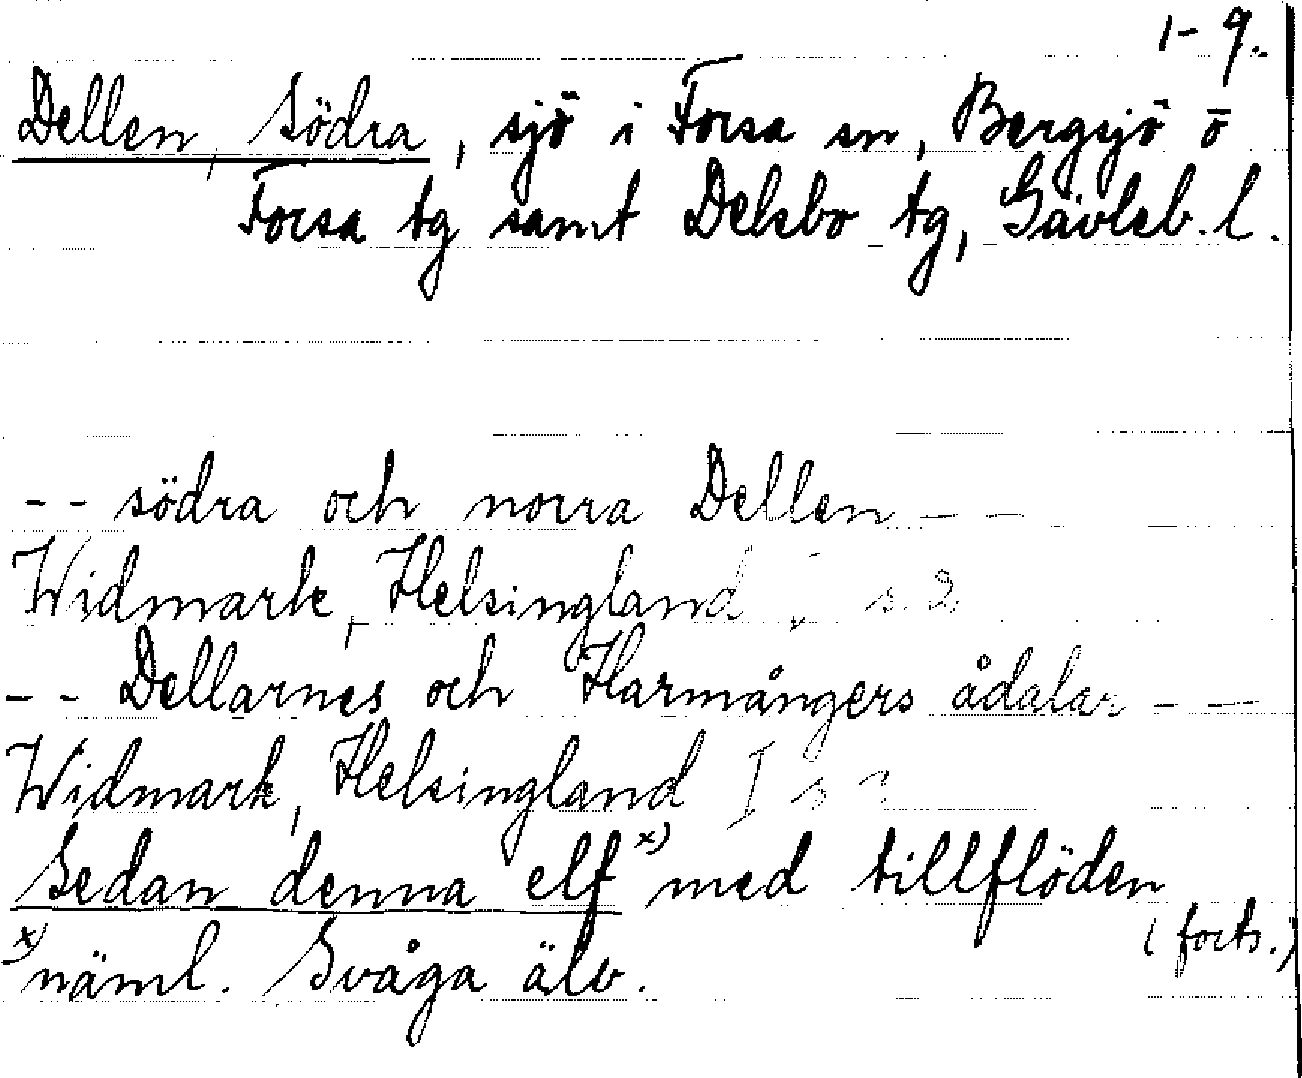 1-9.
Dellen, Södra, sjö i Forsa sn, Bergsjö o
Forsa tg samt Delsbo tg, Gävleb. l.
-- södra och norra Dellen --
Widmark, Helsingland I s. 2
-- Dellarnes och Harmångers ådalar --
Widmark, Helsingland I s
Sedan denna elf x) med tillflöden
(forts.)
x) näml. Svåga älv.